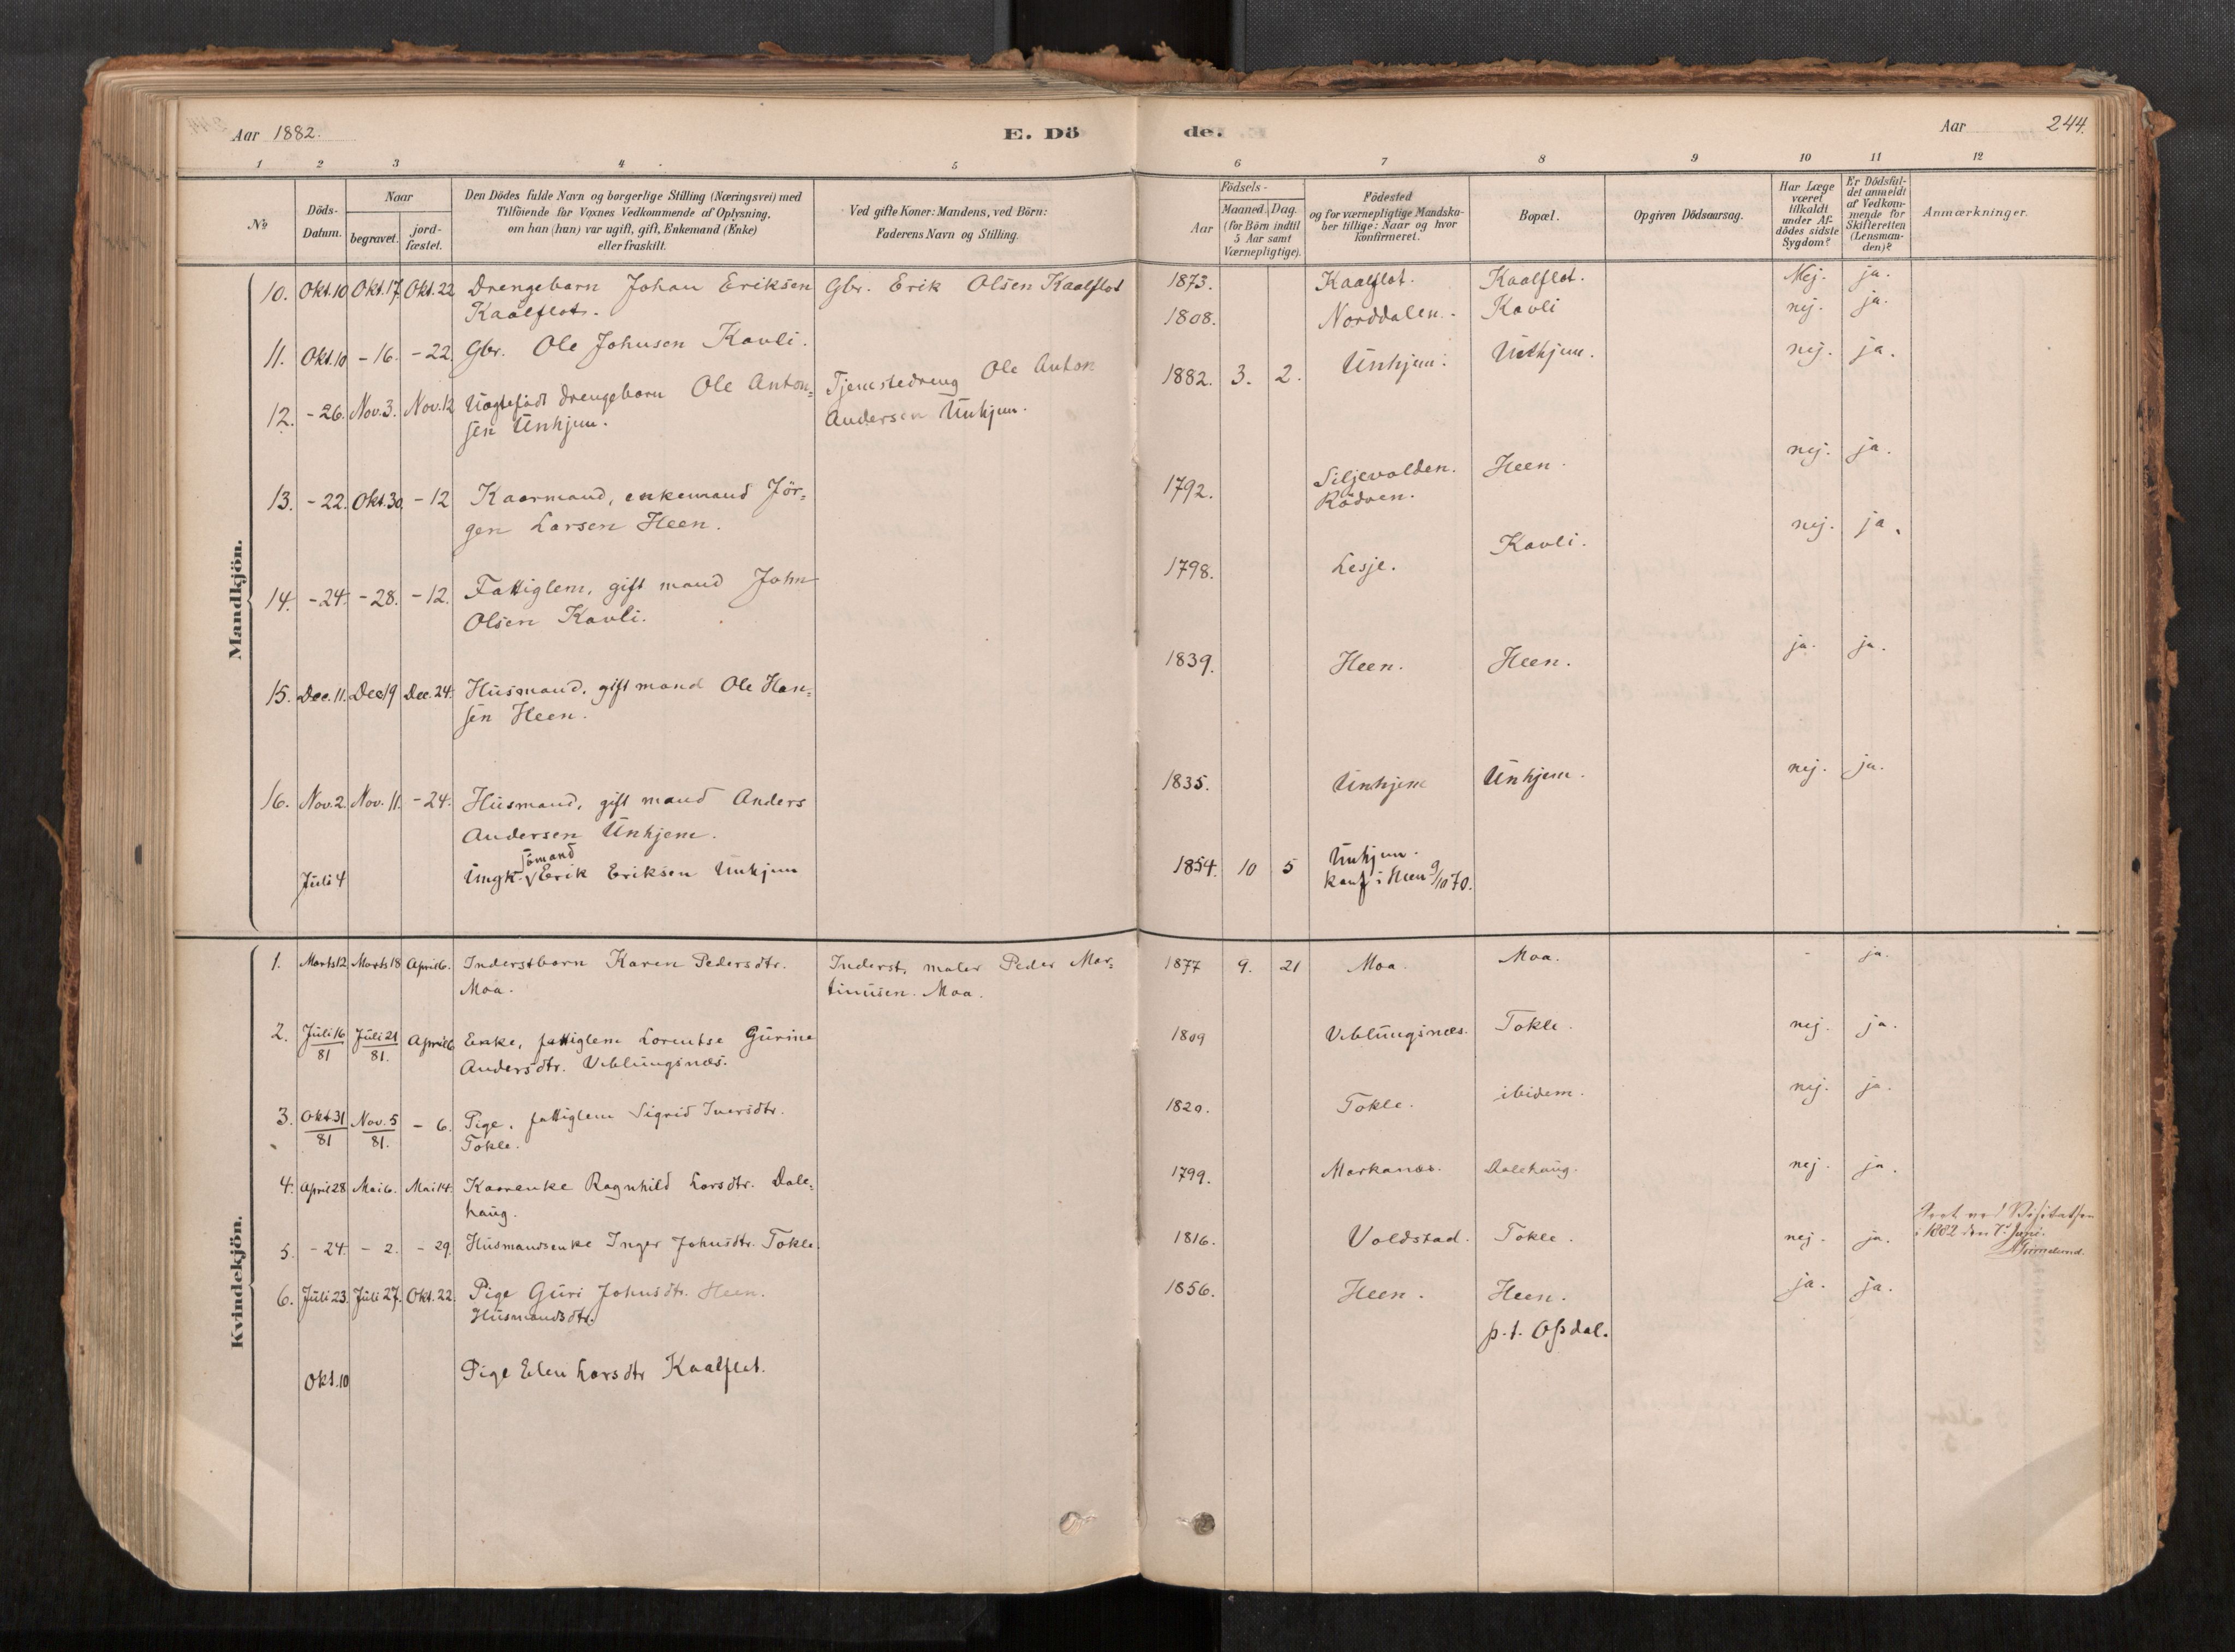 Aar 1882.
E. Dö de.
Aar 244.
1 2 3 4 5 6 7 8 9 10 11 12
№
Döds-Datum.
Naar
begravet.
jord-fæstet.
Den Dödes fulde Navn og borgerlige Stilling (Næringsvei) med
Tilföiende for Voxnes Vedkommende af Oplysning,
om han (hun) var ugift, gift, Enkemand (Enke)
eller fraskilt.
Ved gifte Koner: Mandens, ved Börn:
Faderens Navn og Stilling.
Födsels-
Aar
Maaned. Dag.
(for Börn indtil
5 Aar samt
Værnepligtige).
Födested
og for værnepligtige Mandska-
ber tillige: Naar og hvor
konfirmeret.
Bopæl.
Opgiven Dödsaarsag.
Har Læge
været
tilkaldt
under Af-
dödes sidste
Sygdom?
Er Dödsfal-
det anmeldt
af Vedkom-
mende for
Skifteretten
(Lensman-
den)?
Anmærkninger.
Mandkjön.
10. Okt.10 Okt.17. Okt.22 Drengebarn Johan Eriksen Gbr. Erik Olsen Kaalflot 1873. Kaalflot. Kaalflot. Nej. ja.
Kaalflot.
11. Okt.10 -16. -22. Gbr. Ole Johnsen Kavli. 1808. Norddalen. Kavli nej. ja.
12. -26. Nov.3. Nov.12 Uægtefødt drengebarn Ole Anton= Tjenestedreng Ole Anton 1882. 3. 2. Unhjem. Unhjem. nej. ja.
sen Unhjem. Andersen Unhjem.
13. -22. Okt.30. -12 Kaarmand, enkemand Jör= 1792. Siljevolden. Heen. nej. ja.
gen Larsen Heen. Rödven.
14. -24. -28. -12. Fattiglem, gift mand John 1798. Lesje. Kavli. nej. ja.
Olsen Kavli.
15. Dec.11. Dec19 Dec.24. Husmand, gift mand Ole Han= 1839. Heen. Heen. ja. ja.
sen Heen.
16. Nov.2. Nov.11. -24. Husmand, gift mand Anders 1835. Unhjem Unhjem. nej. ja.
Andersen Unhjem.
sömand
Juli 4 Ungk. Erik Eriksen Unhjem 1854. 10 5 Unhjem.
konf i Heen 9/10 70.
Kvindekjön.
1. Marts12 Marts18 April6. Inderstbarn Karen Pedersdtr. Inderst, maler Peder Mar= 1877 9. 21 Moa. Moa. - ja.
Moa. tinusen. Moa.
2. Juli16/81 Juli21/81. April6 Enke, fattiglem Lorentse Gurine 1809 Veblungsnæs. Tokle. nej. ja.
Andersdtr. Veblungsnæs.
3. Okt31/81 Nov.5/81. - 6. Pige, fattiglem Sigrid Iversdtr. 1820. Tokle. ibidem. nej. ja.
Tokle.
4. April28 Mai6. Mai14. Kaarenke Ragnhild Larsdtr. Dale= 1799. Markanæs. Dalehaug. nej. ja.
haug.
5. -24. - 2. - 29. Husmandsenke Inger Johnsdtr. Tokle. 1816. Voldstad. Tokle. nej. ja. ved Visitatsen
i 1882 den 7 Juni.
6. Juli23. Juli27. Okt.22. Pige Guri Johnsdtr. Heen. 1856. Heen. Heen. ja. ja.
Husmandsdtr. p.t. Opdal.
Okt.10 Pige Elen Larsdtr Kaalflot.